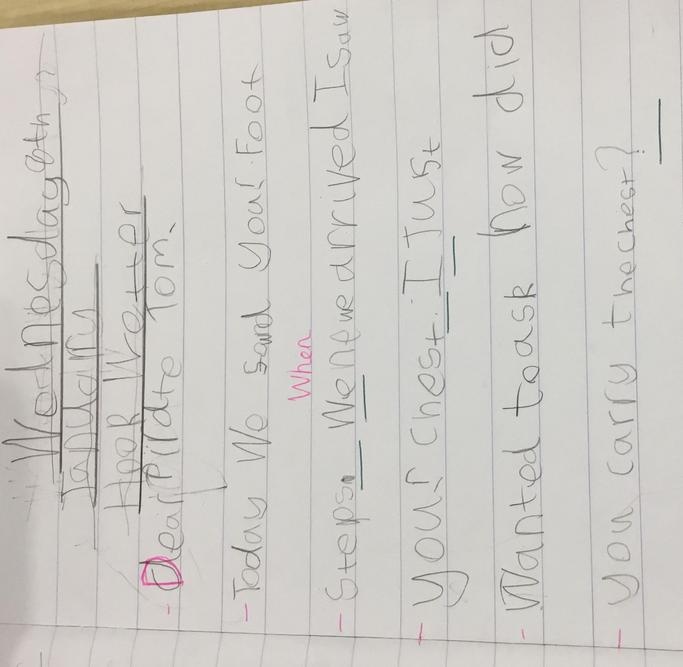 Wednesday 8th
January
Hook Letter
Dear Pirate Tom.
Today We sard your Foot
When
Steps. Wenewe arrived I saw
your chest. I Just
Wanted to ask how did
you carry the chest?